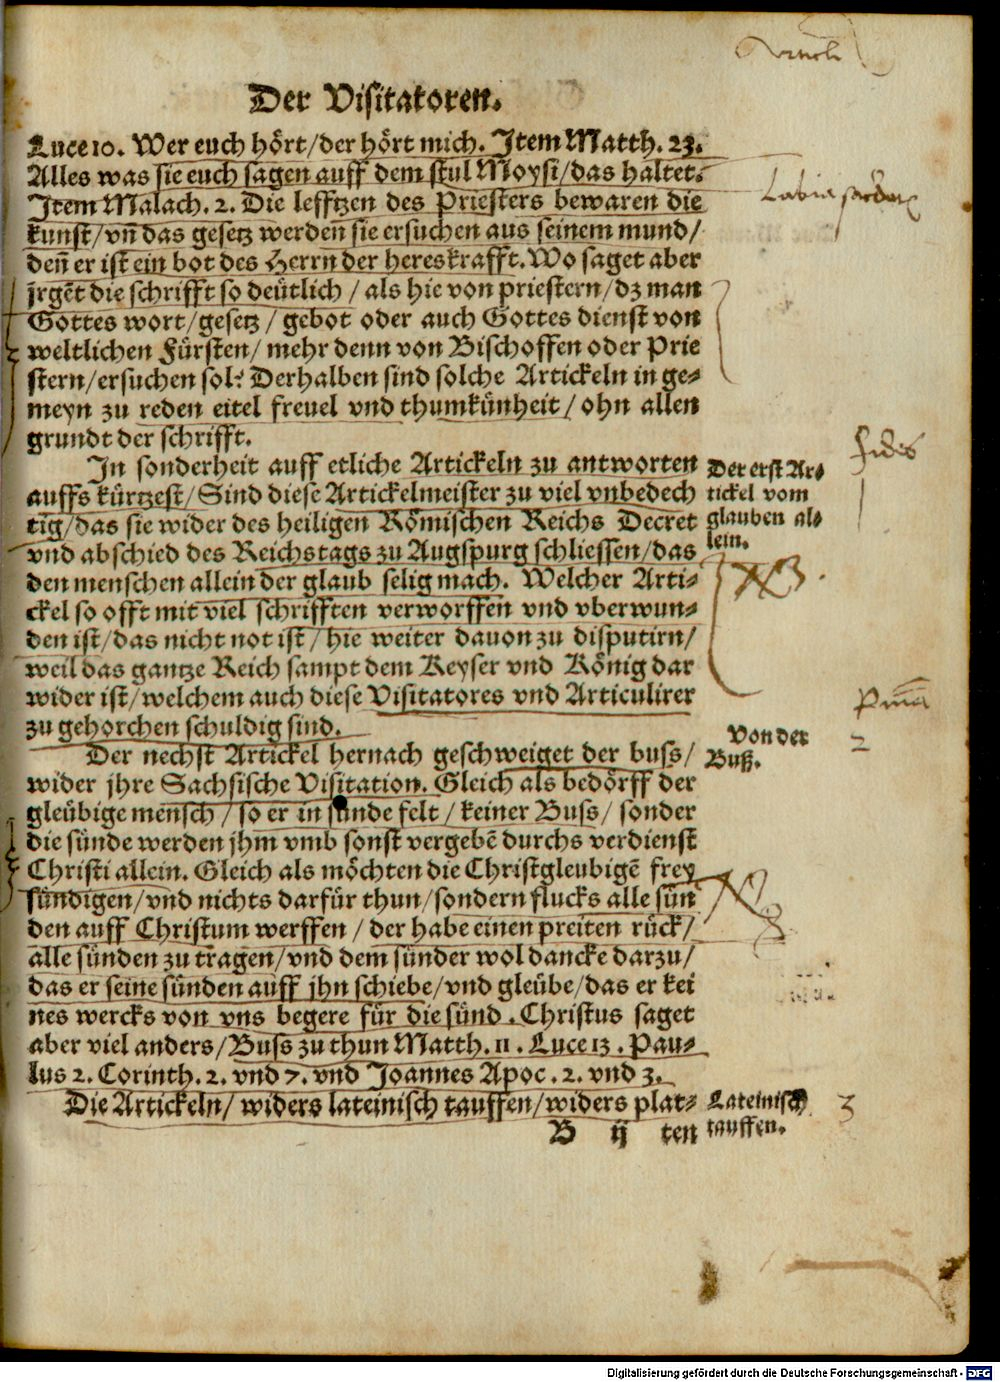 Der Visitatoren.
Luce 10. Wer euch hört/der hört mich. Item Matth. 23.
Alles was sie euch sagen auff dem stul Moysi/das haltet.
Item Malach. 2. Die lefftzen des Priesters bewaren die
kunst/vn̄ das gesetz werden sie ersuchen aus seinem mund/
den̄ er ist ein bot des Herrn der hereskrafft. Wo saget aber
jrgēt die schrifft so deütlich / als hie von priestern/dz man
Gottes wort/gesetz / gebot oder auch Gottes dienst von
weltlichen Fürsten/ mehr denn von Bischoffen oder Prie
stern/ersuchen sol? Derhalben sind solche Artickeln in ge-
meyn zu reden eitel freuel vnd thumkünheit/ ohn allen
grundt der schrifft.
In sonderheit auff etliche Artickeln zu antworten
auffs kürtzest/ Sind diese Artickelmeister zu viel vnbedech
tig/das sie wider des heiligen Römischen Reichs Decret
vnd abschied des Reichstags zu Augspurg schliessen/das
den menschen allein der glaub selig mach. Welcher Arti-
ckel so offt mit viel schrifften verworffen vnd vberwun-
den ist/das nicht not ist/hie weiter dauon zu disputirn/
weil das gantze Reich sampt dem Keyser vnd König dar
wider ist/welchem auch diese Visitatores vnd Articulirer
zu gehorchen schuldig sind.
Der erst Ar-
tickel vom
glauben al-
lein.
fides
Der nechst Artickel hernach geschweiget der buss/
wider jhre Sachsische Visitation. Gleich als bedörff der
gleübige mensch / so er in sünde felt / keiner Buss/ sonder
die sünde werden jhm vmb sonst vergebē durchs verdienst
Christi allein. Gleich als möchten die Christgleubigē frey
sündigen/vnd nichts darfür thun/sondern flucks alle sün
den auff Christum werffen / der habe einen preiten rück/
alle sünden zu tragen/vnd dem sünder wol dancke darzu/
das er seine sünden auff jhn schiebe/vnd gleübe/das er kei
nes wercks von vns begere für die sünd. Christus saget
aber viel anders/Buss zu thun Matth. 11. Luce 13. Pau-
lus 2. Corinth. 2. vnd 7. vnd Joannes Apoc. 2. vnd 3.
Von der
Buß.
2
Die Artickeln/ widers lateinisch tauffen/widers plat-
Lateinisch
tauffen.
3
B ij ten
Digitalisierung gefördert durch die Deutsche Forschungsgemeinschaft - DFG